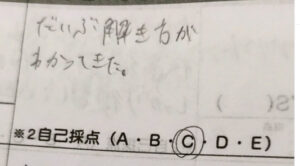 だいぶ解き方が
わかってきた。
※2自己採点（A・B・C・D・E）